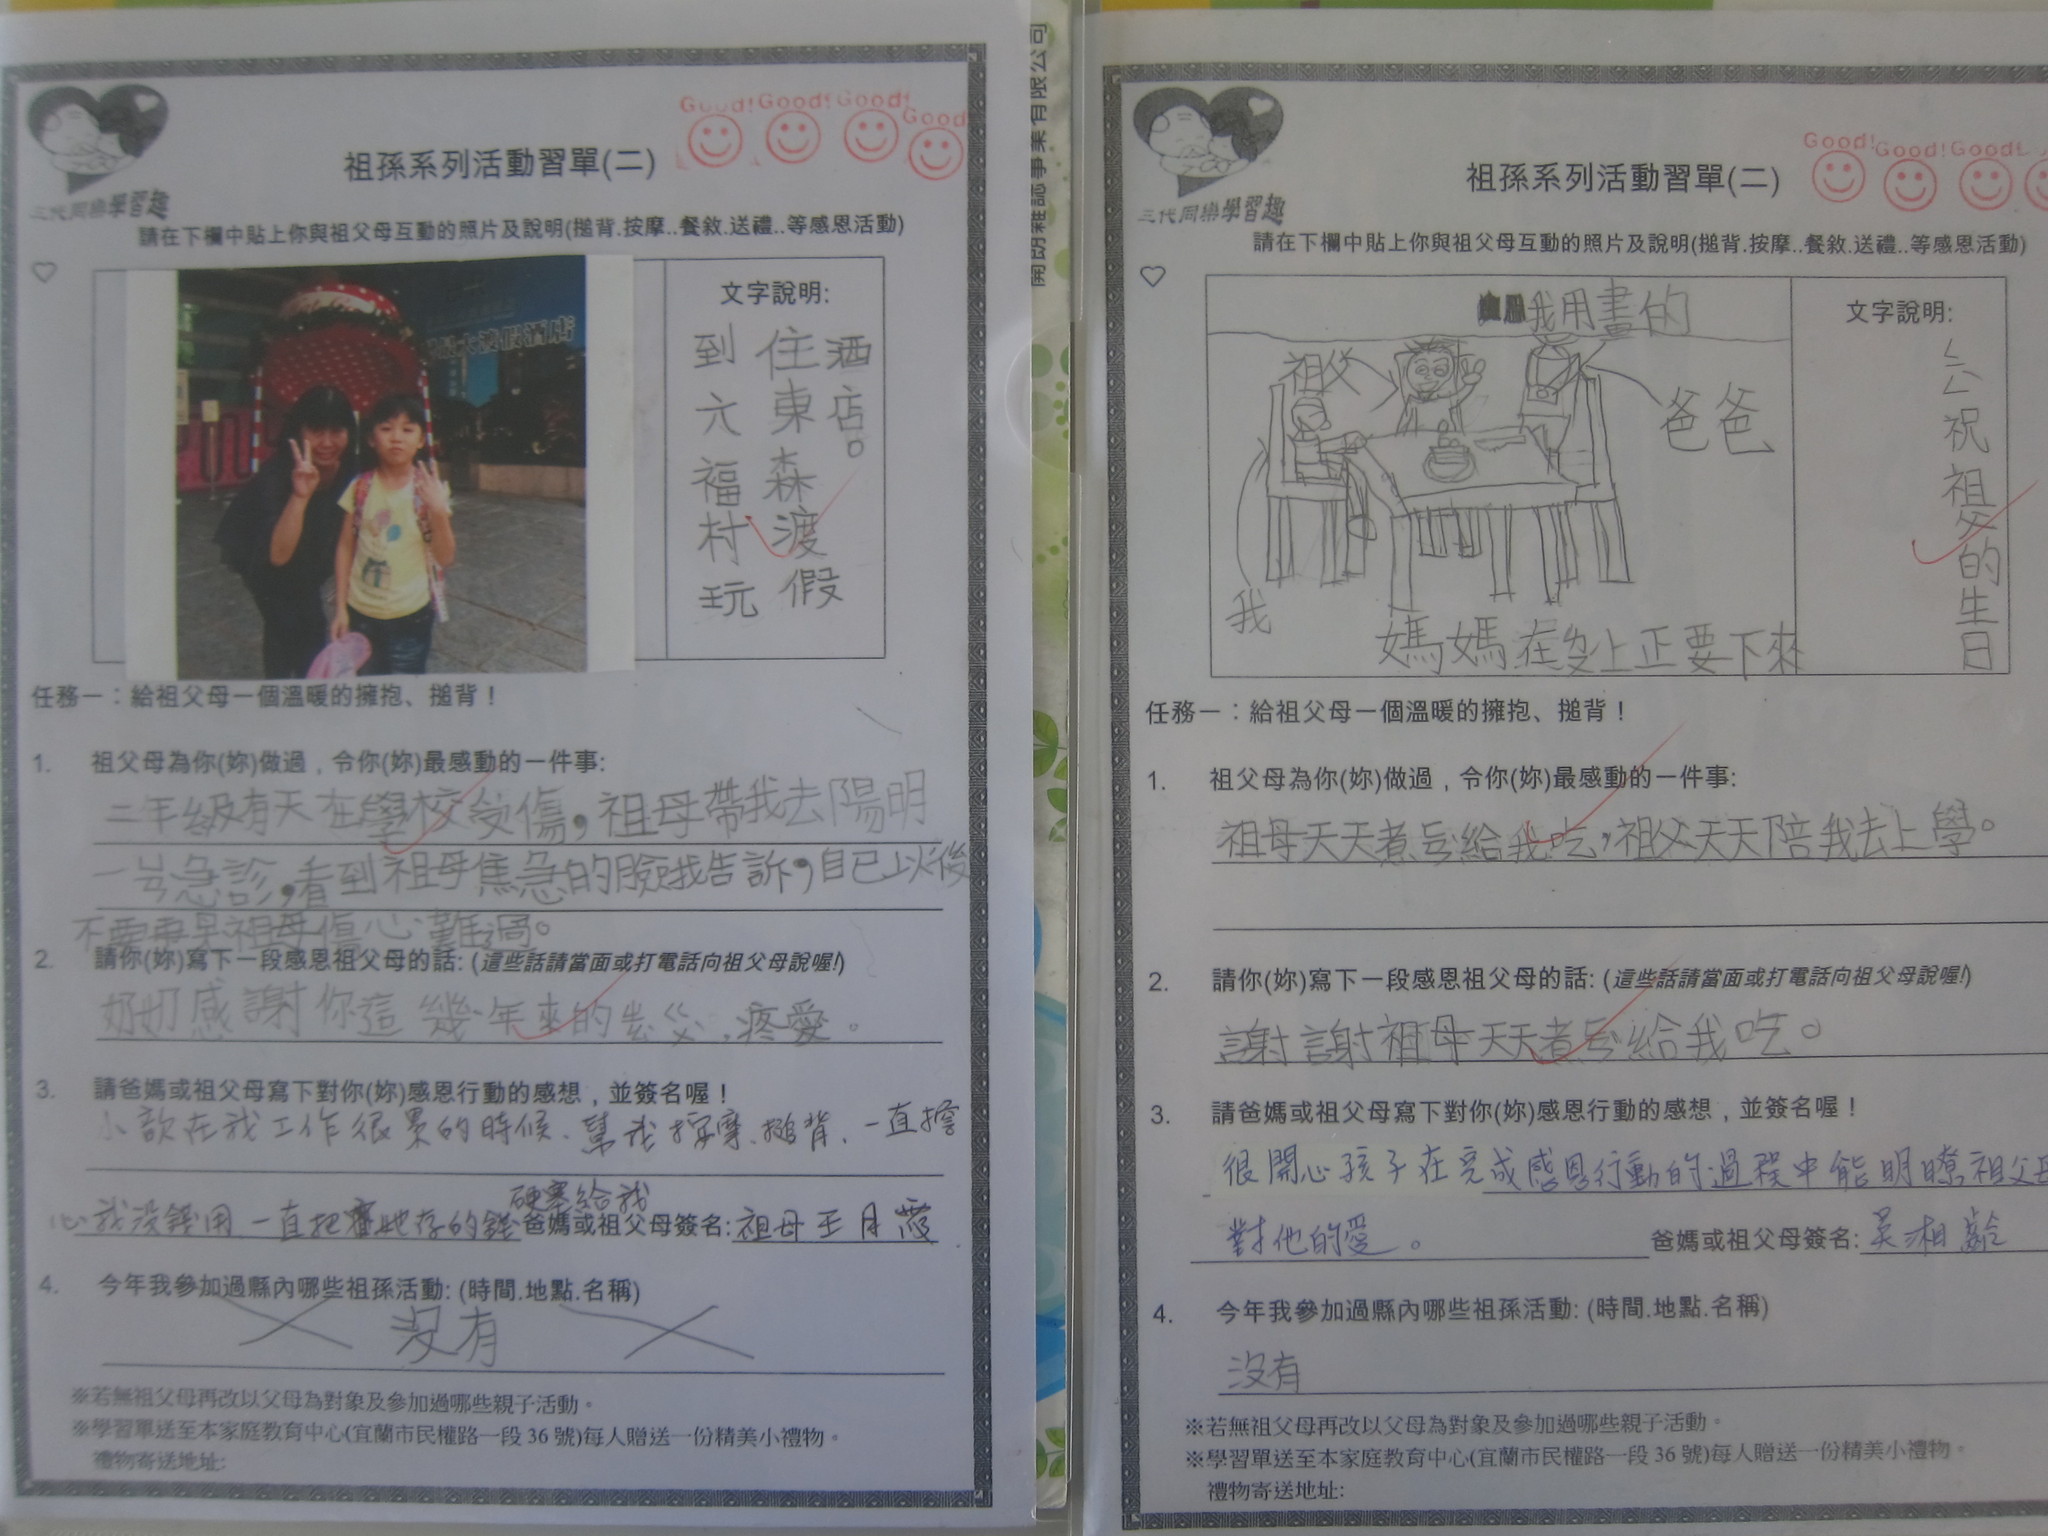 三代同樂學習趣
Good! Good! Good! Good
祖孫系列活動習單(二)
請在下欄中貼上你與祖父母互動的照片及說明(搥背.按摩..餐敘.送禮..等感恩活動)
渡假酒店
文字說明:
到六福村玩
住東森渡假
酒店。
任務一：給祖父母一個溫暖的擁抱、搥背！
1. 祖父母為你(妳)做過，令你(妳)最感動的一件事:
二年級有天在學校受傷，祖母帶我去陽明
急診，看到祖母焦急的臉我告訴，自己以後
不要祖母傷心難過。
2. 請你(妳)寫下一段感恩祖父母的話: (這些話請當面或打電話向祖父母說喔!)
奶奶感謝你這幾年來的疼愛。
3. 請爸媽或祖父母寫下對你(妳)感恩行動的感想，並簽名喔！
小歆在我工作很累的時候、幫我按摩、搥背、一直擔
心我沒錢用、一直把她存的錢硬塞給我
爸媽或祖父母簽名: 祖母王月霞
4. 今年我參加過縣內哪些祖孫活動: (時間.地點.名稱)
沒有
※若無祖父母再改以父母為對象及參加過哪些親子活動。
※學習單送至本家庭教育中心(宜蘭市民權路一段 36 號)每人贈送一份精美小禮物。
禮物寄送地址:
開朗雜誌事業有限公司
三代同樂學習趣
Good! Good! Good!
祖孫系列活動習單(二)
請在下欄中貼上你與祖父母互動的照片及說明(搥背.按摩..餐敘.送禮..等感恩活動)
我用畫的
祖父
爸爸
我
媽媽在上正要下來
文字說明:
祝祖父的生日
任務一：給祖父母一個溫暖的擁抱、搥背！
1. 祖父母為你(妳)做過，令你(妳)最感動的一件事:
祖母天天煮ㄎ給我吃，祖父天天陪我去上學。
2. 請你(妳)寫下一段感恩祖父母的話: (這些話請當面或打電話向祖父母說喔!)
謝謝祖母天天煮ㄎ給我吃。
3. 請爸媽或祖父母寫下對你(妳)感恩行動的感想，並簽名喔！
很開心孩子在完成感恩行動的過程中能明瞭祖父母
對他的愛。
爸媽或祖父母簽名: 吳湘齡
4. 今年我參加過縣內哪些祖孫活動: (時間.地點.名稱)
沒有
※若無祖父母再改以父母為對象及參加過哪些親子活動。
※學習單送至本家庭教育中心(宜蘭市民權路一段 36 號)每人贈送一份精美小禮物。
禮物寄送地址: